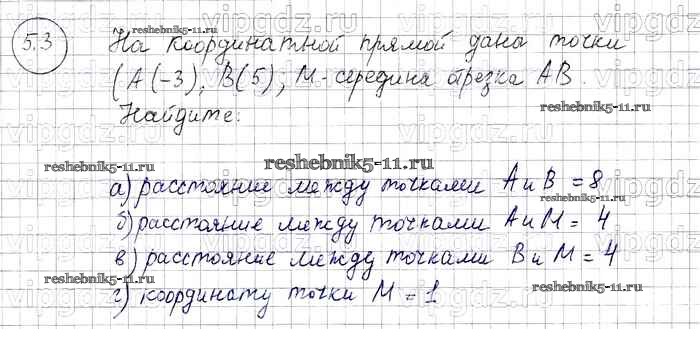 5.3
На координатной прямой дана точки
(А(-3), В(5), М - середина отрезка АВ
Найдите:
reshebnik5-11.ru
а) расстояние между точками А и В = 8
б) расстояние между точками А и М = 4
в) расстояние между точками В и М = 4
г) координату точки М = 1
reshebnik5-11.ru
reshebnik5-11.ru
reshebnik5-11.ru
reshebnik5-11.ru
reshebnik5-11.ru
reshebnik5-11.ru
vipgdz.ru